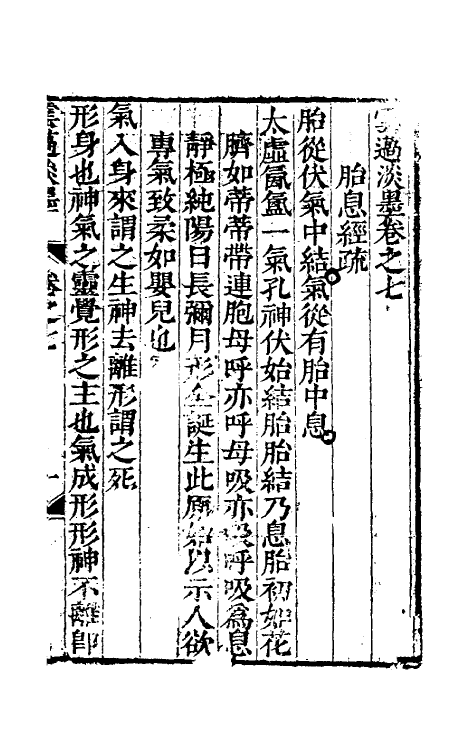 過淡墨卷之七
胎息經疏
胎從伏氣中結氣從有胎中息
太虛氤氳一氣孔神伏始結胎胎結乃息胎初如花
臍如蒂蒂帶連胞母呼亦呼母吸亦吸呼吸爲息
靜極純陽日長彌月形全誕生此原始以示人欲
專氣致柔如嬰兒也
氣入身來謂之生神去離形謂之死
形身也神氣之靈覺形之主也氣成形形神不離卽
雲過淡墨 卷之七 一